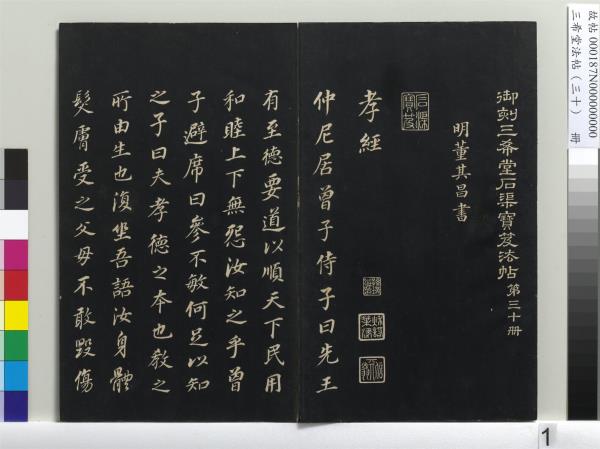 故帖 000187N000000000
三希堂法帖（三十） 冊
御刻三希堂石渠寶笈法帖第三十冊
明董其昌書
石渠寶笈
孝經
仲尼居曾子侍子曰先王
有至德要道以順天下民用
和睦上下無怨汝知之乎曾
子避席曰參不敏何足以知
之子曰夫孝德之本也教之
所由生也復坐吾語汝身體
髮膚受之父母不敢毀傷
1